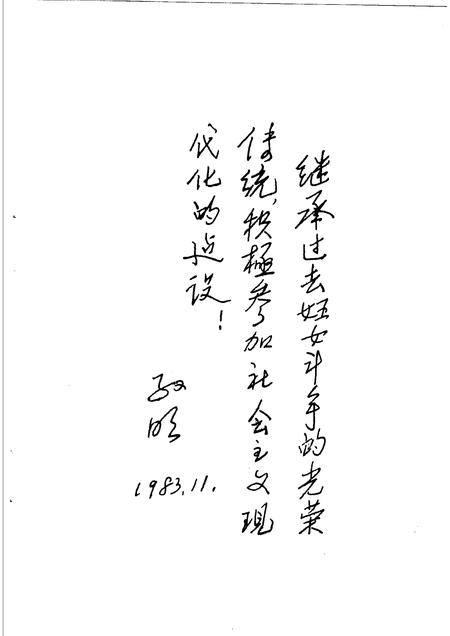 继承过去妇女斗争的光荣
传统，积極参加社会主义现
代化的建设！
明
1983.11.